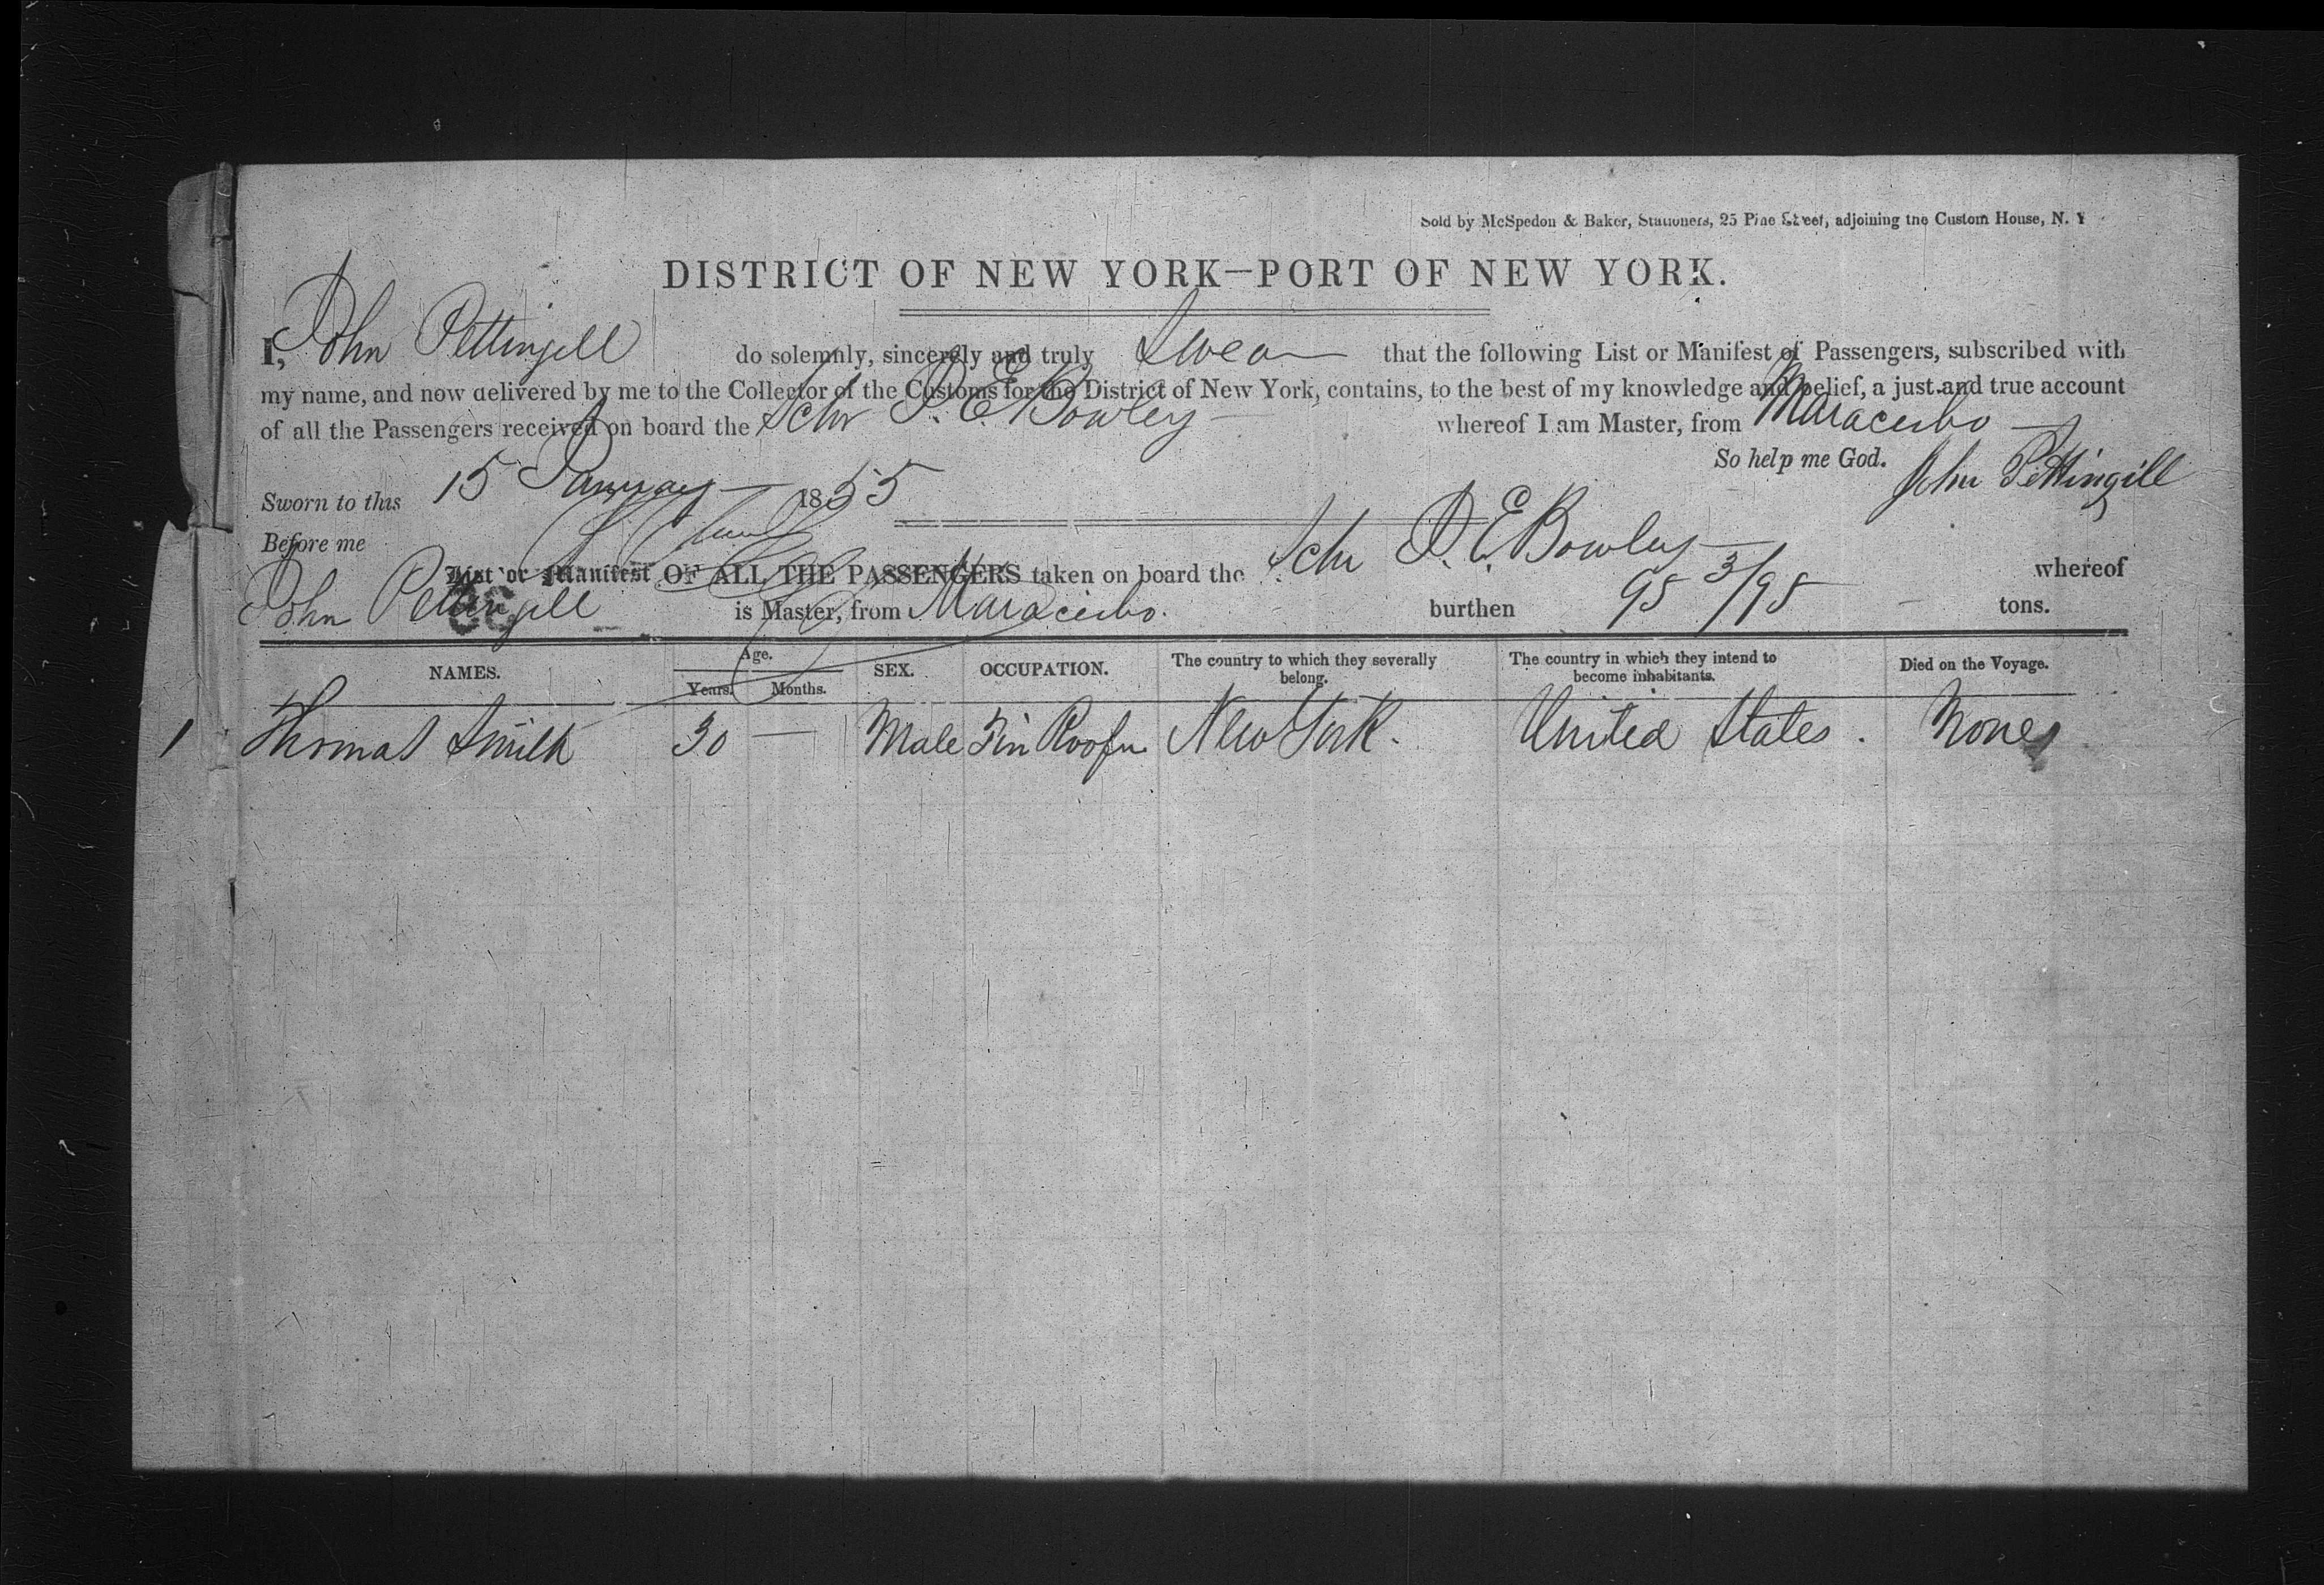 Sold by McSpedon & Baker, Stationers, 25 Pine Street, adjoining the Custom House, N. Y
DISTRICT OF NEW YORK—PORT OF NEW YORK.
I, John Pettingill do solemnly, sincerely and truly Swear that the following List or Manifest of Passengers, subscribed with
my name, and now delivered by me to the Collector of the Customs for the District of New York, contains, to the best of my knowledge and belief, a just and true account
of all the Passengers received on board the Schr P. E. Bowley whereof I am Master, from Maraceibo
So help me God. John Pettingill
Sworn to this 15 January 1855
Before me
List or Manifest OF ALL THE PASSENGERS taken on board the Schr P. E. Bowley whereof
John Pettingill is Master, from Maraceibo. burthen 95 3/95 tons.
NAMES. Age. Years. Months. SEX. OCCUPATION. The country to which they severally belong. The country in which they intend to become inhabitants. Died on the Voyage.
1 Thomas Smith 30 — Male Tin Roofer New York. United States. None